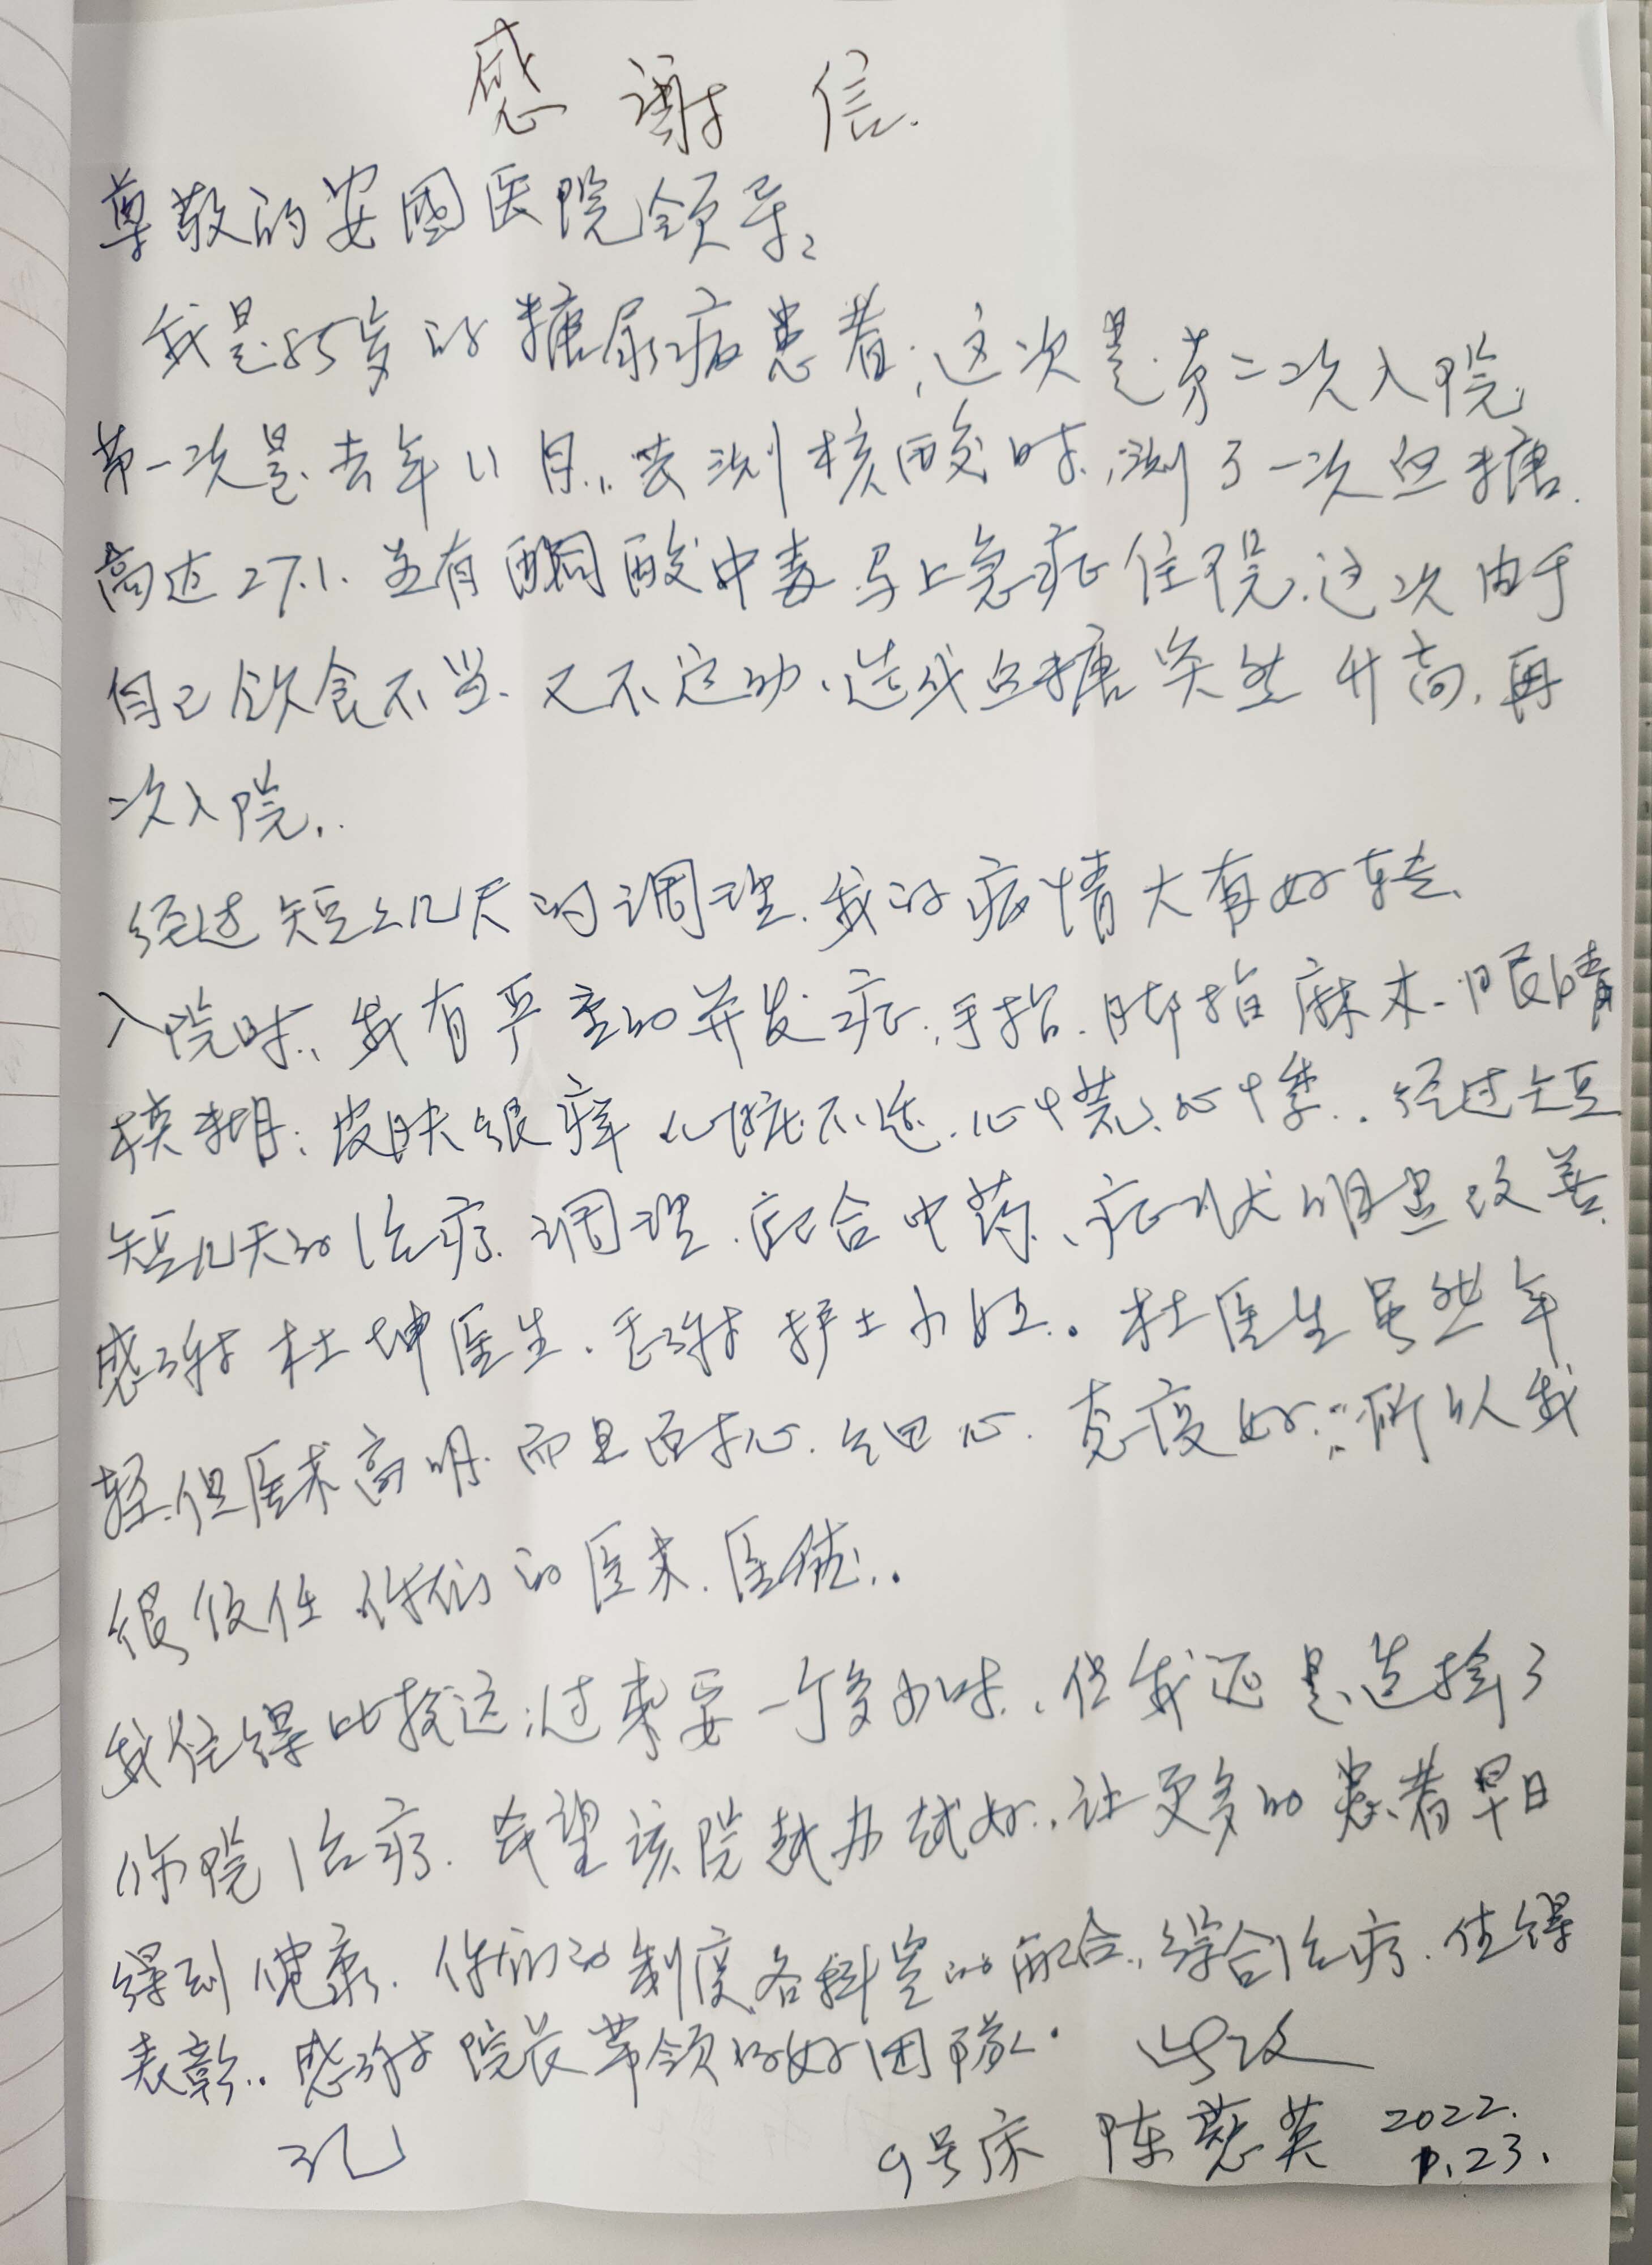 感谢信.
尊敬的安国医院领导:
我是85岁的糖尿病患者,这次是第二次入院,
第一次是去年11月,去测核酸时,测了一次血糖.
高达27.1.并有酮酸中毒.马上急症住院.这次由于
自己饮食不当、又不运动、造成血糖突然升高,再
次入院.
经过短短几天的调理.我的病情大有好转、
入院时,我有严重的并发症,手指.脚指麻木.眼睛
模糊,皮肤很痒 心脏不适.心慌、心悸.经过短
短几天的治疗.调理.配合中药、症状明显改善.
感谢杜坤医生.感谢护士小姐.杜医生虽然年
轻.但医术高明.而且耐心.细心.态度好,所以我
很信任你们的医术.医德.
我住得比较远,过来要一个多小时,但我还是选择了
你院治疗.希望该院越办越好,让更多的患者早日
得到健康.你们的制度各科室的配合,综合治疗.值得
表彰.感谢院长带领的好团队. 此致
礼 9号床 陈慧英 2022.
1.23.